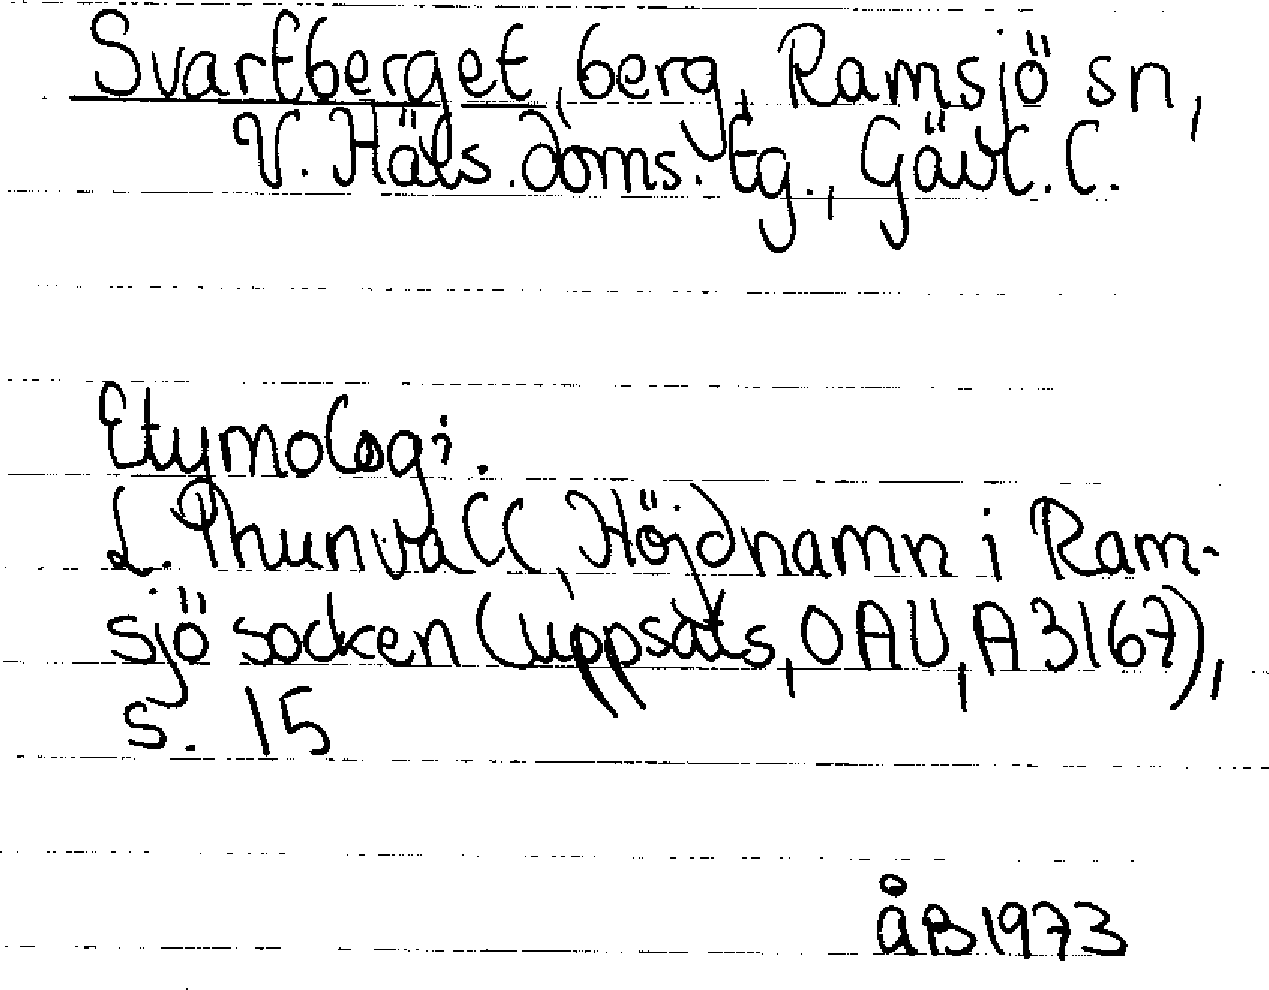 Svartberget, berg, Ramsjö sn,
V. Häls. doms. tg., Gävl. l.
Etymologi.
L. Thunvall, Höjdnamn i Ram-
sjö socken (uppsats, OAU, A 3167),
s. 15
ÅB 1973